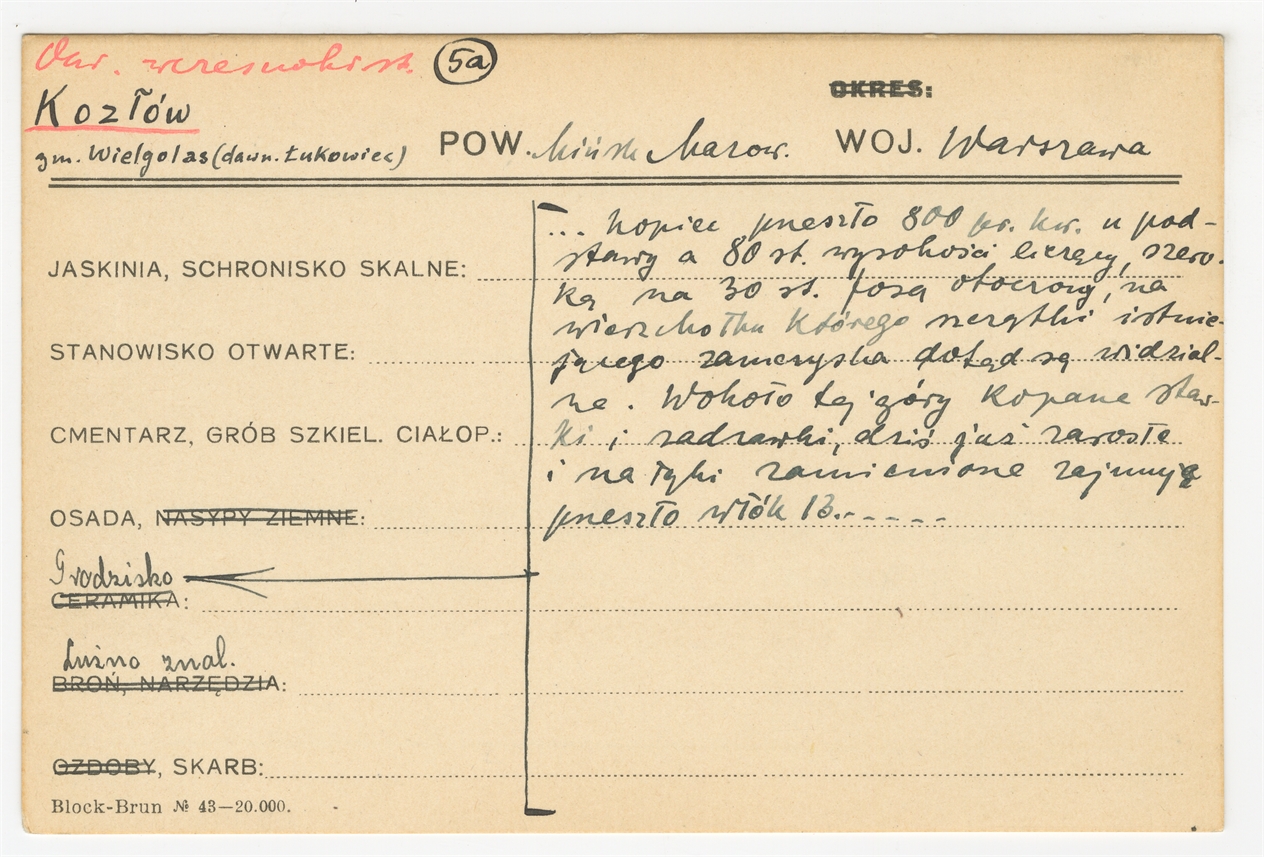 Osw. wczesnohist. 5a
Kozłów
OKRES:
gm. Wielgolas (dawn. Łukowiec) POW. Mińsk Mazow. WOJ. Warszawa
... kopiec przeszło 800 pr. kw. u pod-
stawy a 80 st. wysokości liczący, szero-
JASKINIA, SCHRONISKO SKALNE:
ką na 30 st. fosą otoczony, na
wierzchołku którego szczątki istnie-
STANOWISKO OTWARTE:
jącego zamczyska dotąd są widzial-
ne. Wokoło tej góry kopane staw-
CMENTARZ, GRÓB SZKIEL. CIAŁOP.:
ki i sadzawki, dziś już zarosłe
i na łąki zamienione zajmują
OSADA, NASYPY ZIEMNE:
przeszło włók 13.-----
Grodzisko
CERAMIKA:
Luźno znal.
BROŃ, NARZĘDZIA:
OZDOBY, SKARB:
Block-Brun № 43—20.000.